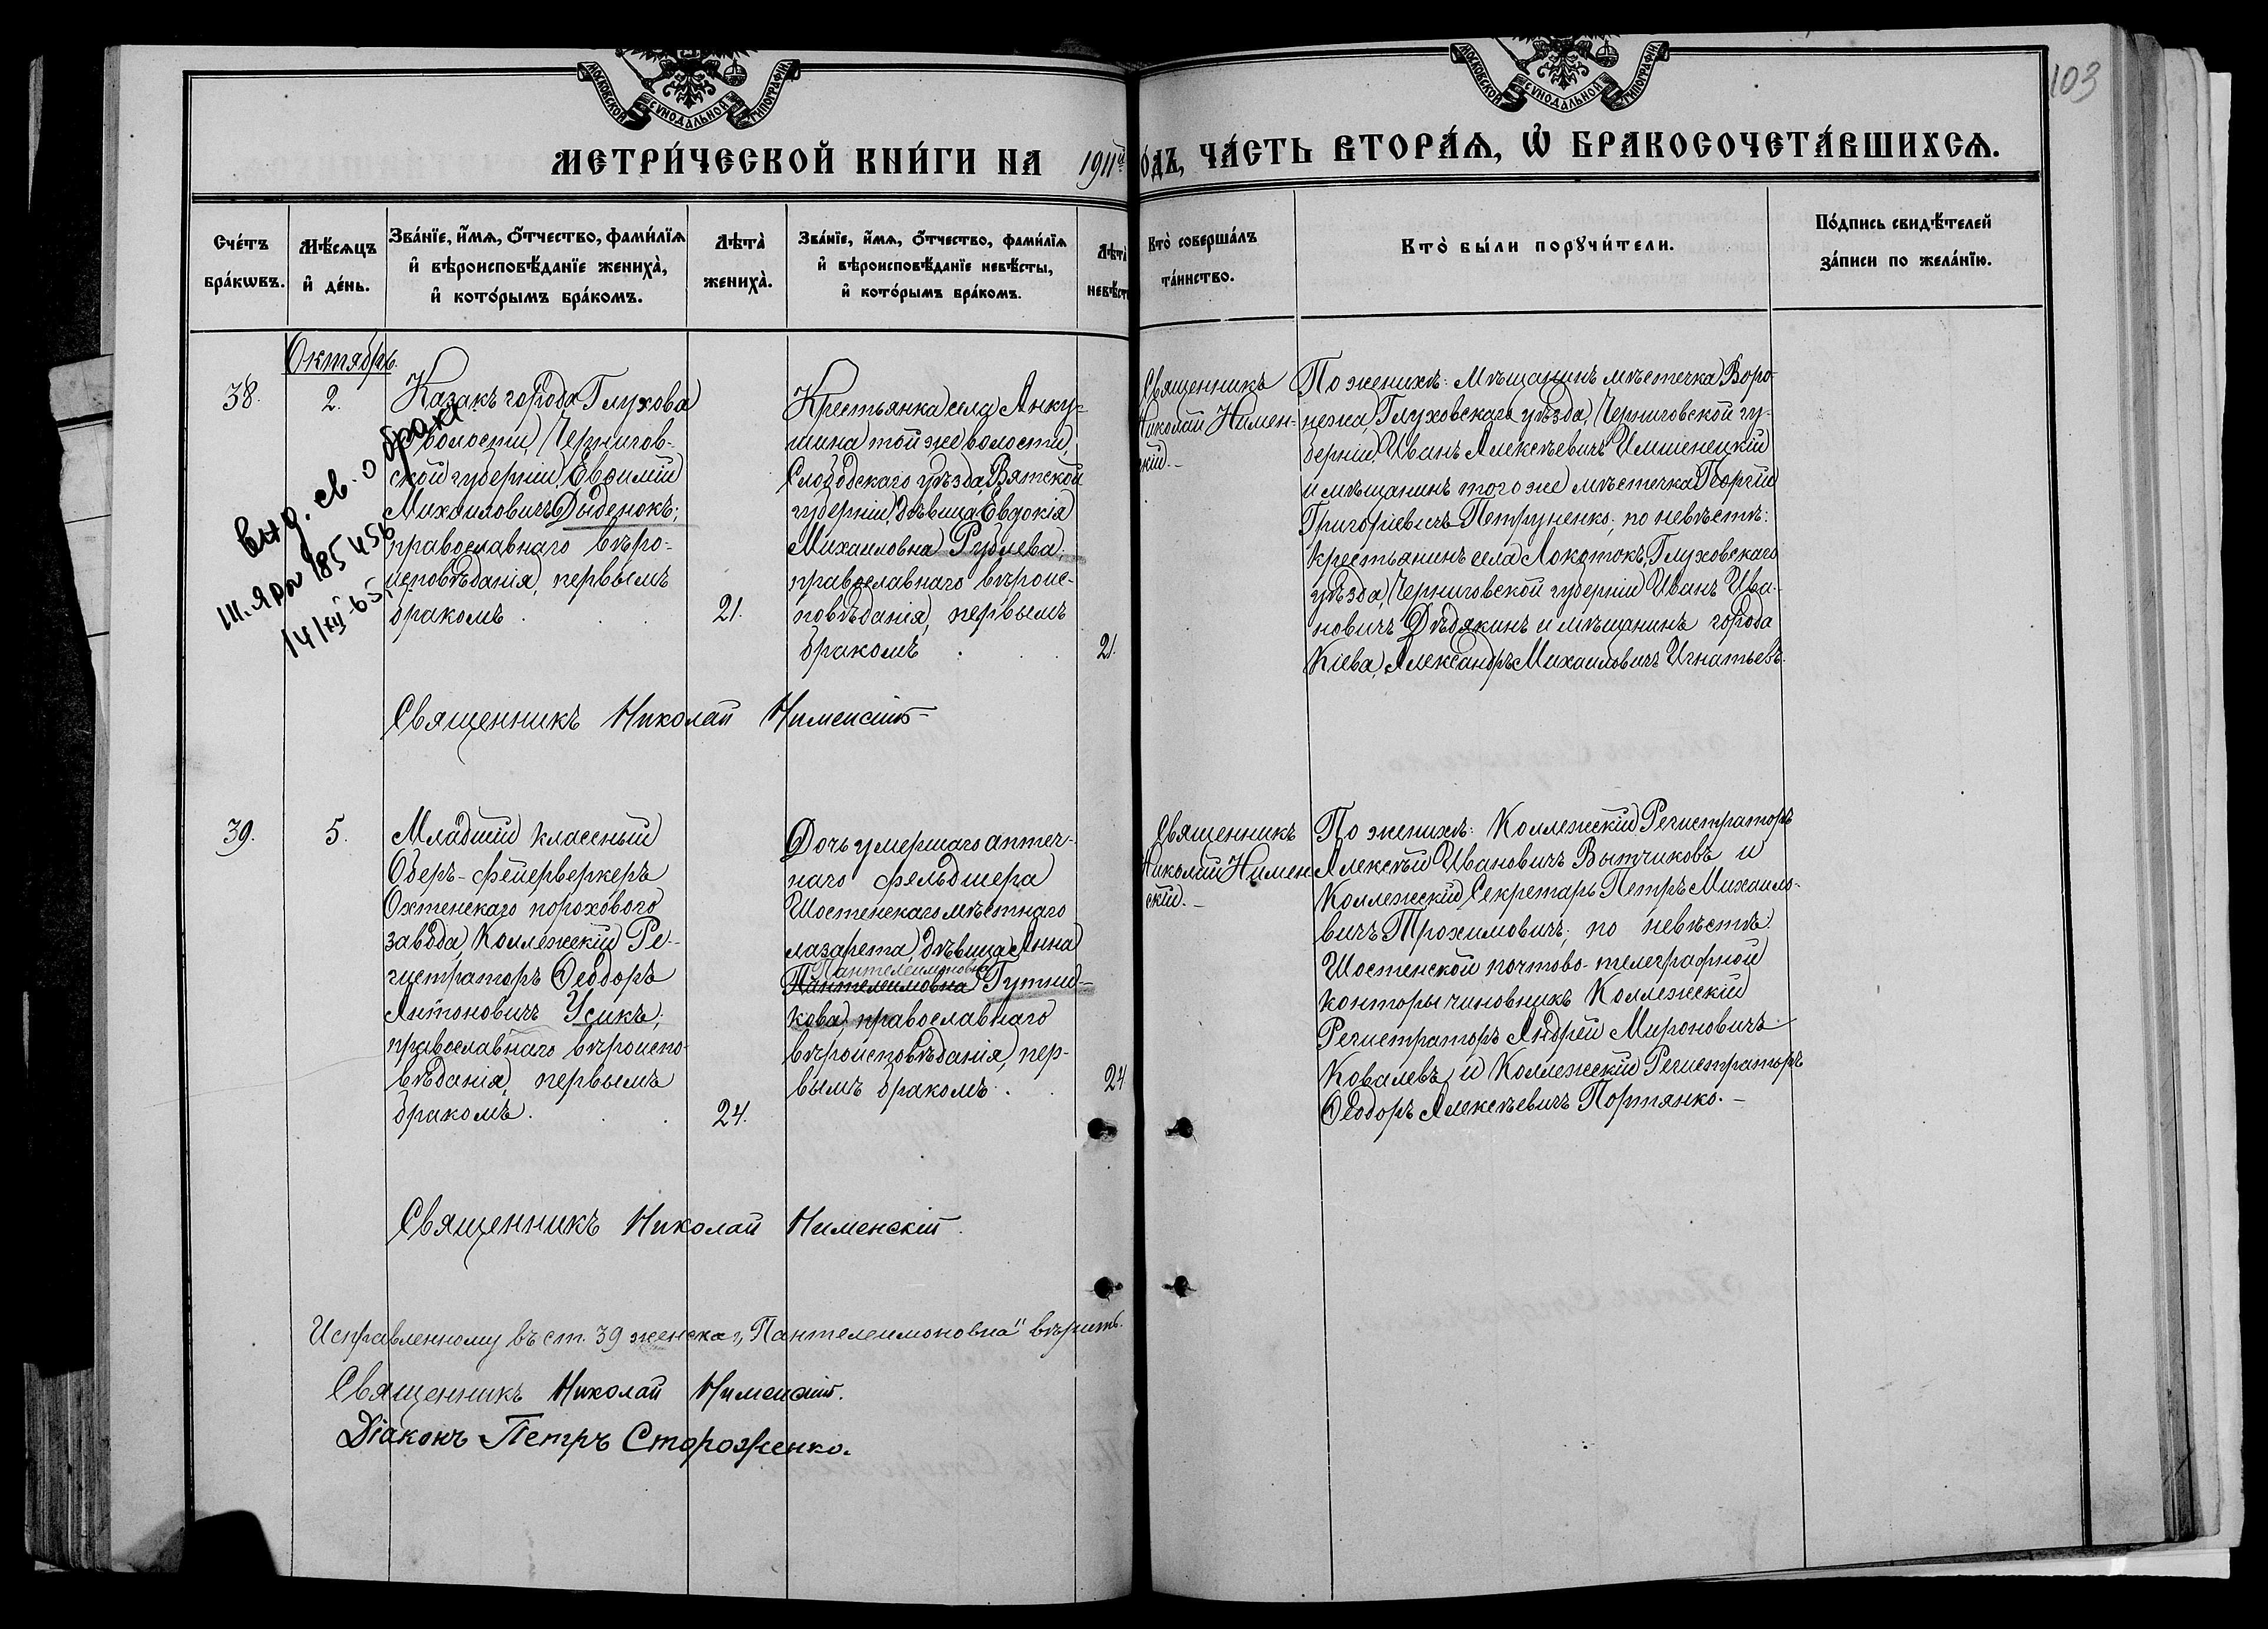 МОСКОВСКОЙ СУНОДАЛЬНОЙ ТИПОГРАФІИ
МОСКОВСКОЙ СУНОДАЛЬНОЙ ТИПОГРАФІИ
103
МЕТРИ́ЧЕСКОЙ КНИ́ГИ НА 1911й
ОДЪ, ЧА́СТЬ ВТОРА́Ѧ, Ѽ БРАКОСОЧЕТА́ВШИХСѦ.
Сче́тъ
бра́кѡвъ.
Мѣ́сѧцъ
и҆ де́нь.
Зва́нїе, и҆́мѧ, ѻ҆́тчество, фами́лїѧ
и҆ вѣроисповѣ́данїе жениха̀,
и҆ кото́рымъ бра́комъ.
Лѣта̀
жениха̀.
Зва́нїе, и҆́мѧ, ѻ҆́тчество, фами́лїѧ
и҆ вѣроисповѣ́данїе невѣ́сты,
и҆ кото́рымъ бра́комъ.
Лѣта̀
невѣ́ст
Кто̀ соверша́лъ
та́инство.
Кто̀ бы́ли порꙋчи́тели.
По́дпись свидѣ́телей
за́писи по жела́нїю.
Октябрь.
38.
2.
Казакъ города Глухова
волости, Чернигов-
ской губерніи, Евѳимій
Михаиловичъ Дыденокъ;
православнаго вѣро-
исповѣданія, первымъ
бракомъ
21.
выд. св. о браке
14/XII-65г.
Крестьянка села Анку-
шина той же волости,
Слободскаго уѣзда, Вятской
губерніи, дѣвица Евдокія
Михаиловна Рублева;
православнаго вѣроис-
повѣданія, первымъ
бракомъ
21.
Священникъ
Николай Нимен-
скій.-
По женихѣ: Мѣщанинъ мѣстечка Воро-
нежа, Глуховскаго уѣзда, Черниговской гу-
берніи, Иванъ Алексѣевичъ Имшенецкій
и мѣщанинъ того же мѣстечка Георгій
Григоріевичъ Петруненко; по невѣстѣ:
крестьянинъ села Локотокъ, Глуховскаго
уѣзда, Черниговской губерніи Иванъ Ива-
новичъ Дѣдякинъ и мѣщанинъ города
Кіева, Александръ Михаиловичъ Игнатьевъ.
Священникъ Николай Нименскій-
39.
5.
Младшій классный
Оберъ-фейерверкеръ
Охтенскаго порохового
завода, Коллежскій Ре-
гистраторъ Ѳеодоръ
Антоновичъ Усикъ;
православнаго вѣроиспо-
вѣданія, первымъ
бракомъ.
24.
Дочь умершаго аптеч-
наго фельдшера
Шостенскаго мѣстнаго
лазарета, дѣвица Анна
Пантелеимоновна
Пантелеимовна Гутни-
кова, православнаго
вѣроисповѣданія, пер-
вымъ бракомъ.
24
Священникъ
Николай Нимен
скій.-
По женихѣ: Коллежскій Регистраторъ
Алексѣй Ивановичъ Вытчиковъ и
Коллежскій Секретарь Петръ Михаило-
вичъ Трохимовичъ; по невѣстѣ:
Шостенской почтово-телеграфной
конторы чиновникъ Коллежскій
Регистраторъ Андрей Мироновичъ
Ковалевъ и Коллежскій Регистраторъ
Ѳеодоръ Алексѣевичъ Портянко.-
Священникъ Николай Нименскій.
Исправленному въ ст. 39 женска г, „Пантелеимоновна" вѣрить.
Священникъ Николай Нименскій.
Діаконъ Петръ Стороженко.